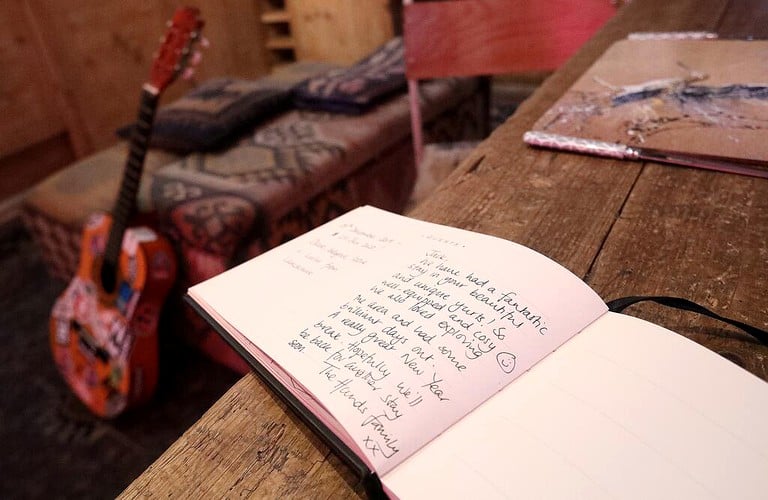 Jack.
We have had a fantastic
stay in your beautiful
and unique yurt. So
well-equipped and cosy
We also loved exploring
the area and had some
brilliant days out.
A really great New Year
break. Hopefully we'll
be back for another stay
soon.
The Hands Family
xx